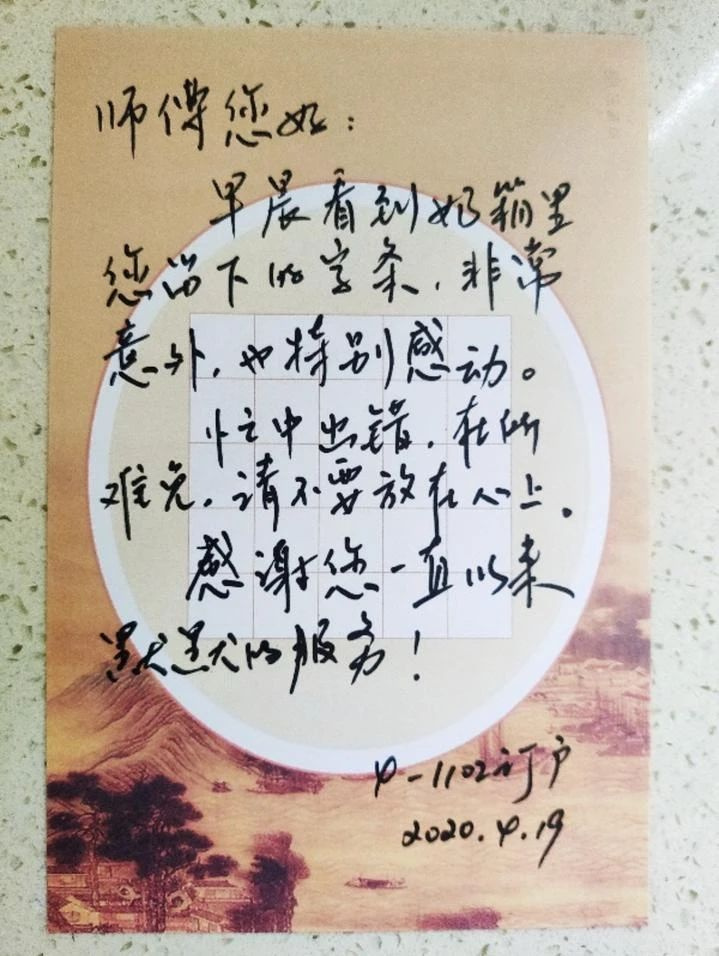 师傅您好：
早晨看到奶箱里
您留下的字条，非常
意外，也特别感动。
忙中出错，在所
难免，请不要放在心上。
感谢您一直以来
默默的服务！
4-1102订户
2020.4.19